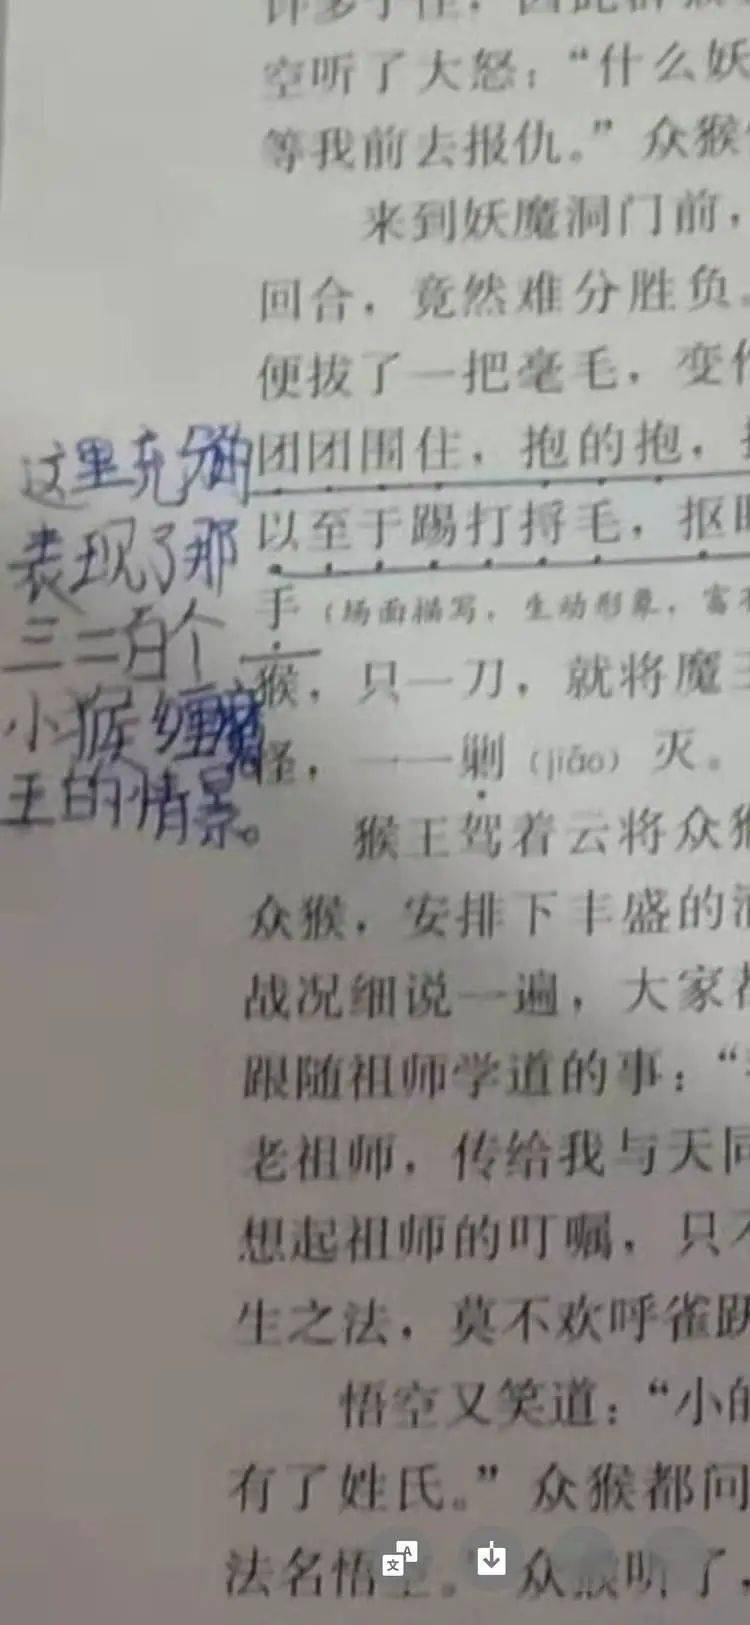 空听了大怒：“什么妖
等我前去报仇。”众猴
来到妖魔洞门前，
回合，竟然难分胜负。
便拔了一把毫毛，变作
团团围住，抱的抱，
以至于踢打挦毛，抠眼
手（场面描写，生动形象，富有
猴，只一刀，就将魔王
怪，一一剿（jiǎo）灭。
猴王驾着云将众猴
众猴，安排下丰盛的酒
战况细说一遍，大家都
跟随祖师学道的事：“
老祖师，传给我与天同
想起祖师的叮嘱，只不
生之法，莫不欢呼雀跃
悟空又笑道：“小的
有了姓氏。”众猴都问
法名悟空。”众猴听了，
这里充分的
表现了那
三二百个
小猴缠魔
王的情景。